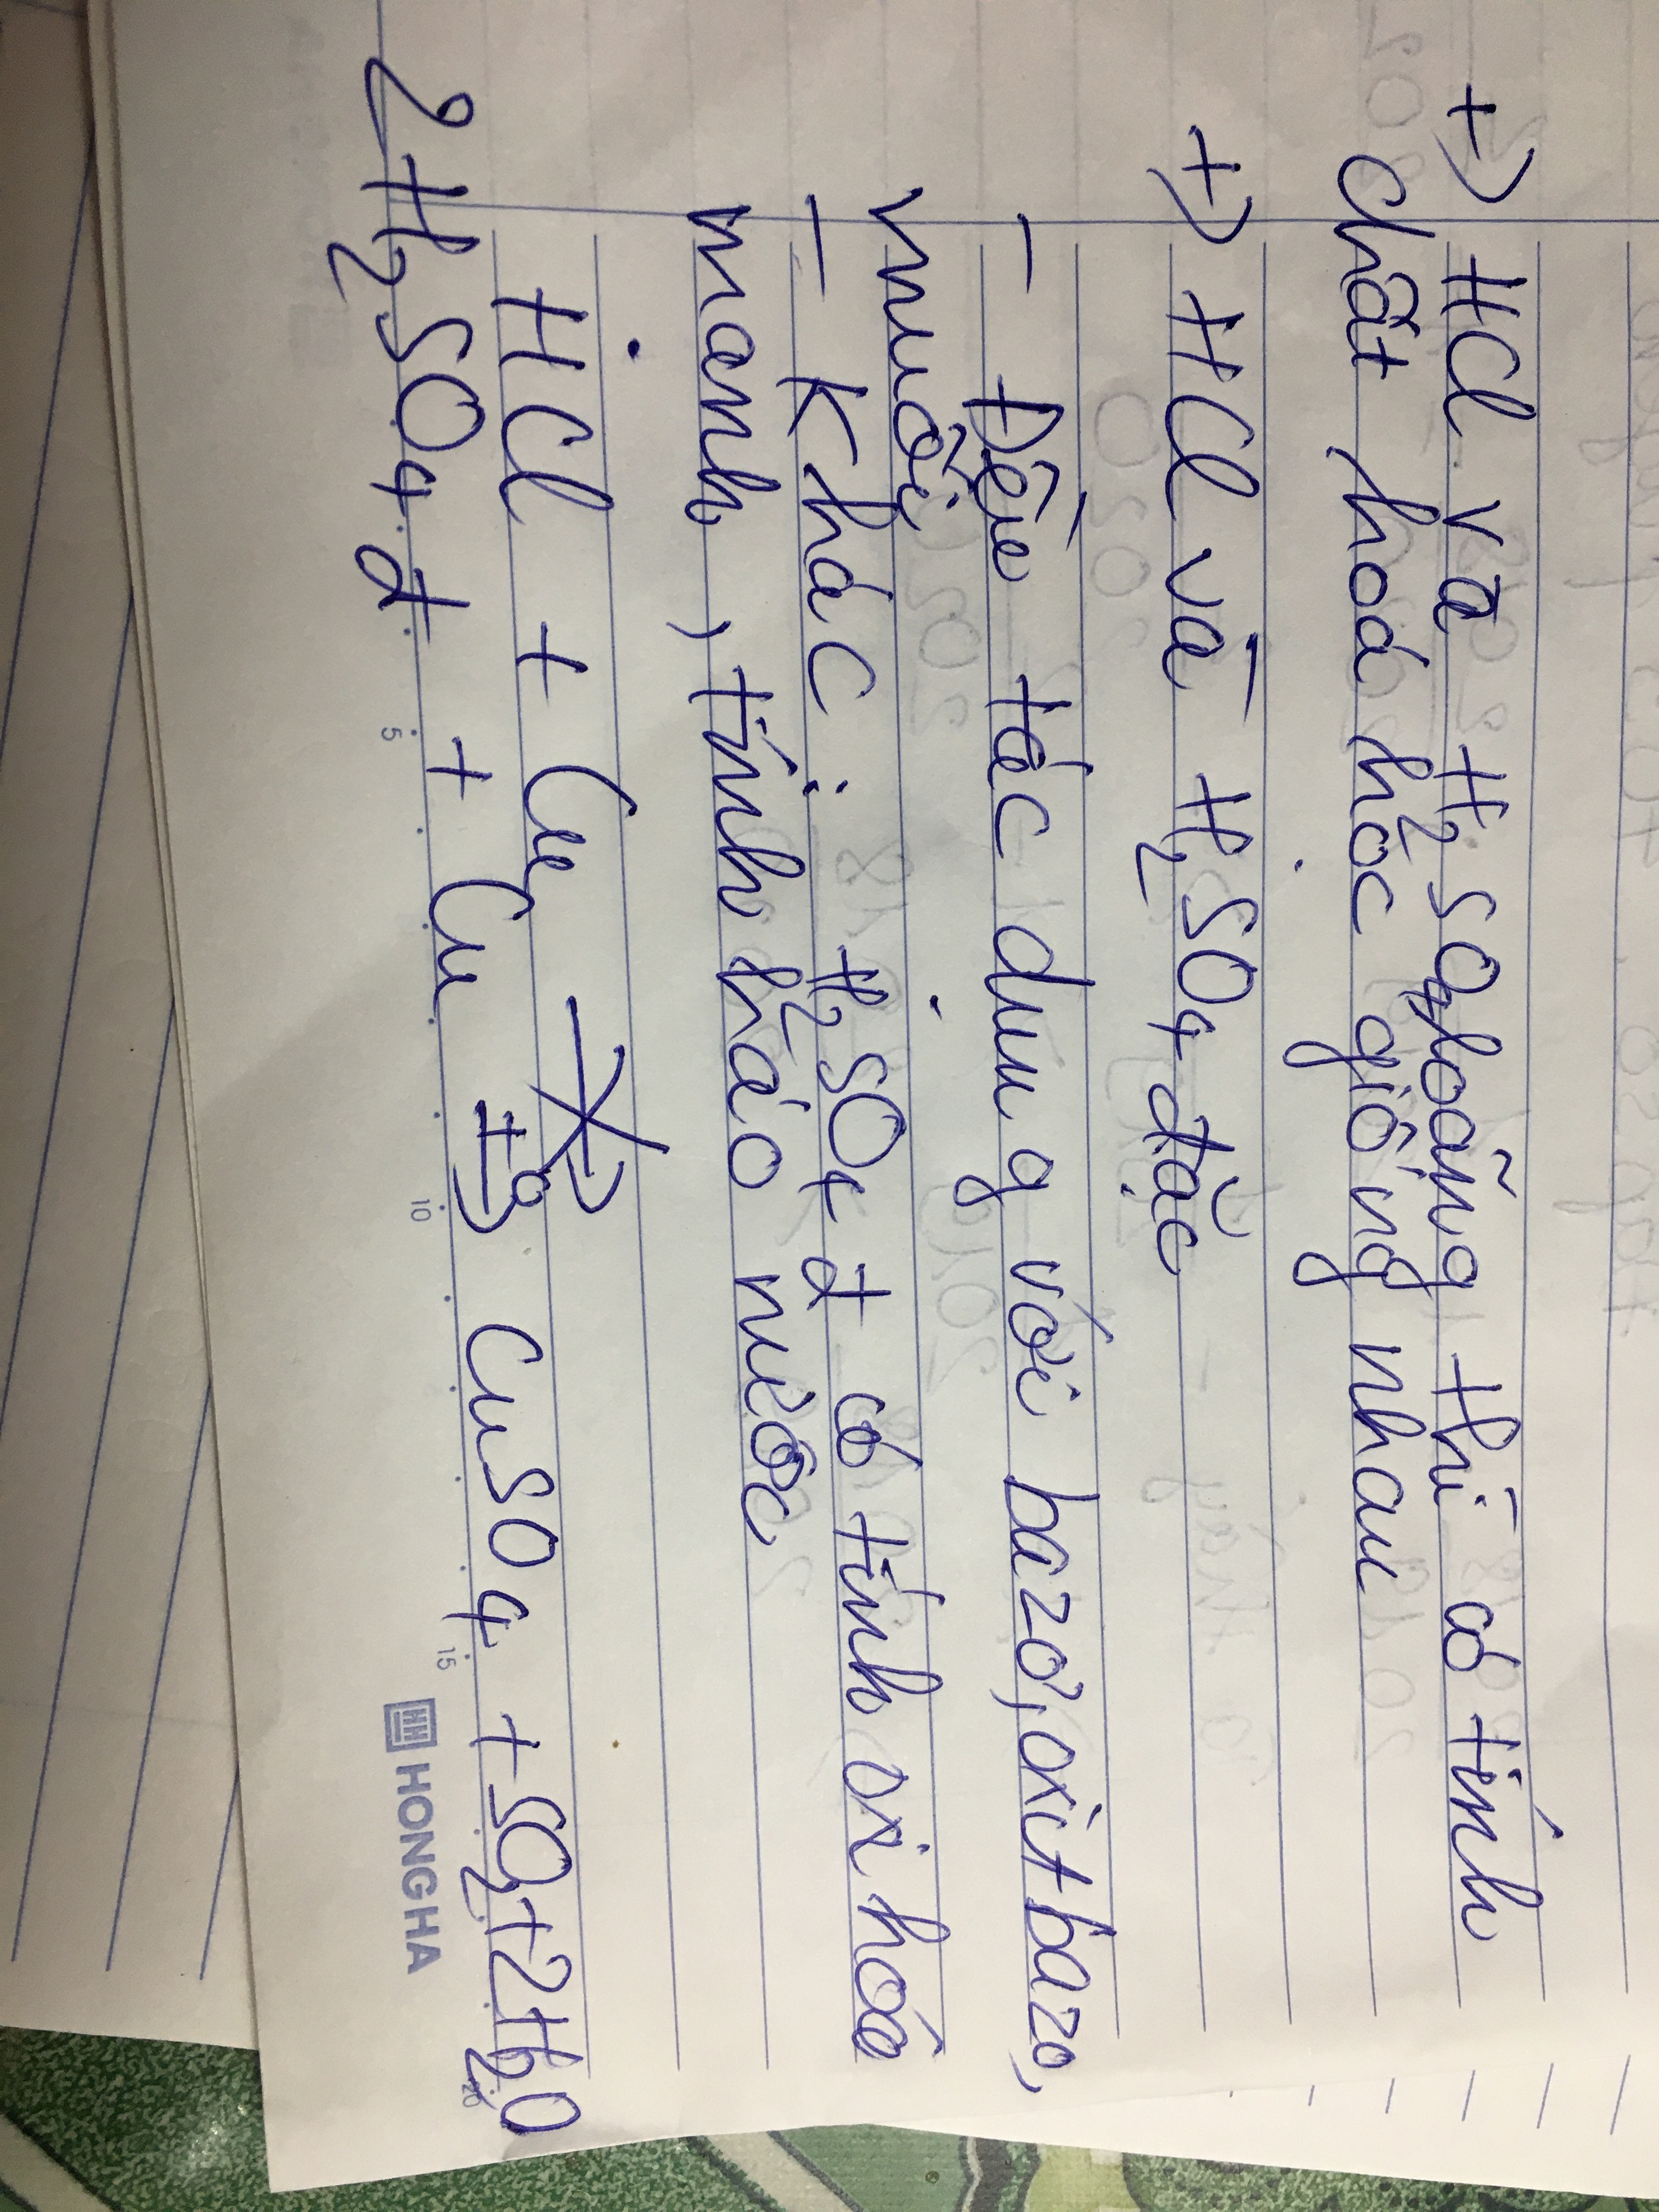 +) HCl và H₂SO₄loãng thì có tính
chất hoá học giống nhau
+) HCl và H₂SO₄ đặc
- Đều tác dụng với bazơ, oxit bazơ,
muối
- Khác : H₂SO₄ đ có tính oxi hoá
mạnh, tính háo nước
HCl + Cu
2H₂SO₄ đ + Cu →t° CuSO₄ + SO₂ + 2H₂O
5 10 15 20
HONG HA